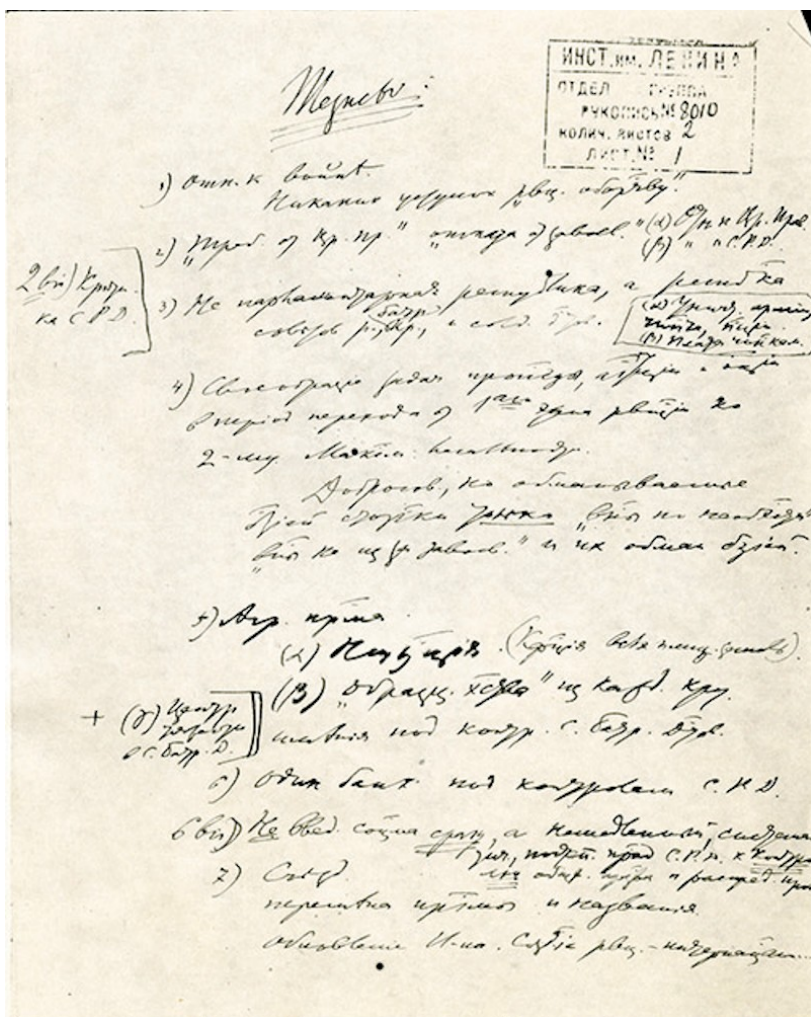 ИНСТ. им. ЛЕНИНА
ОТДЕЛ ГРУППА
РУКОПИСЬ № 8010
КОЛИЧ. ЛИСТОВ 2
ЛИСТ. № 1
Тезисы:
1) Отн. к войнѣ.
Никаких уступок „рвц. оборчву.“
2) „Треб. от Вр. пр.“ „отказа от завоев.“ (α) Отн к Вр. Прав.
(β) „ к С.Р.Д.
2 bis) Крити-
ка С.Р.Д.
3) Не парламентарная республика, а респубка
совѣтов р., батр., и солд.
(α) Уничт. армии,
чинва, пции.
(β) Плата чинкам.
4) Своеобразіе задач пропгды, агации и
в период перехода от 1-го этапа рвции ко
2-му. Максим. легальности.
Добросов., но обманываемые
сторки только „війы по необхти“,
„війы не из за завоев.“ и их обман бзіей.
5) Агр. прмма
(α) Націция. (Кфція всѣх помещ. земель).
(β) „Образц. хзва“ из кажд. кру.
имѣнія под контр. С. батр. Дтов.
+ (γ) Центр
тяжести
в С. батр. Д.
6) Один банк под контролем С.Р.Д.
6 bis) Не введ. соцма сразу, а
С.Р.Д. к контро-
лю общ. прва и распред. про
7) Съѣзд.
перемѣна прммы и названія.
обновленіе И-ла. Созданіе рвц.-